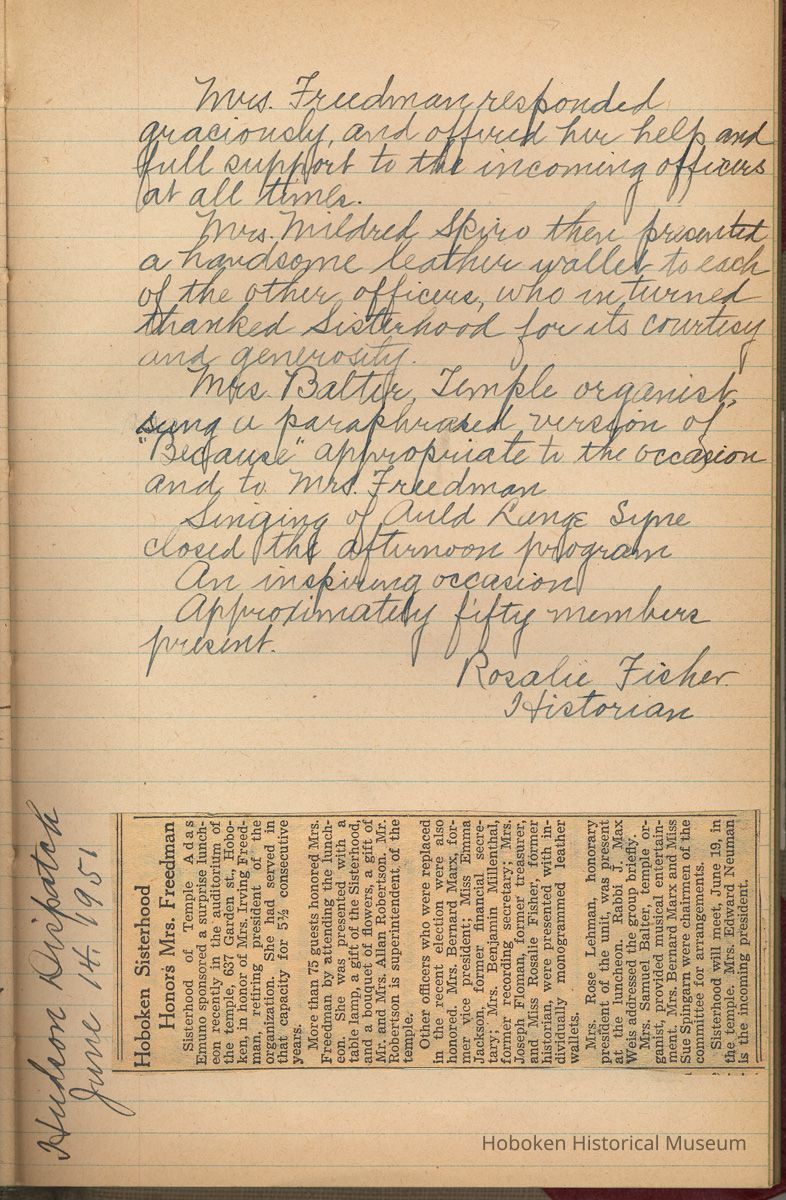 Mrs. Freedman responded
graciously, and offered her help and
full support to the incoming officers
at all times.
Mrs. Mildred Skiro then presented
a handsome leather wallet to each
of the other officers, who in turned
thanked Sisterhood for its courtesy
and generosity.
Mrs. Balter, Temple organist,
sung a paraphrased version of
"Because" appropriate to the occasion
and to Mrs. Freedman
Singing of Auld Lange Syne
closed the afternoon program
An inspiring occasion
Approximately fifty members
present.
Rosalie Fisher
Historian
Hudson Dispatch
June 14, 1951
Hoboken Sisterhood
Honors Mrs. Freedman
Sisterhood of Temple Adas
Emuno sponsored a surprise lunch-
eon recently in the auditorium of
the temple, 637 Garden st., Hobo-
ken, in honor of Mrs. Irving Freed-
man, retiring president of the
organization. She had served in
that capacity for 5½ consecutive
years.
More than 75 guests honored Mrs.
Freedman by attending the lunch-
eon. She was presented with a
table lamp, a gift of the Sisterhood,
and a bouquet of flowers, a gift of
Mr. and Mrs. Allan Robertson. Mr.
Robertson is superintendent of the
temple.
Other officers who were replaced
in the recent election were also
honored. Mrs. Bernard Marx, for-
mer vice president; Miss Emma
Jackson, former financial secre-
tary; Mrs. Benjamin Millenthal,
former recording secretary; Mrs.
Joseph Floman, former treasurer,
and Miss Rosalie Fisher, former
historian, were presented with in-
dividually monogrammed leather
wallets.
Mrs. Rose Lehman, honorary
president of the unit, was present
at the luncheon. Rabbi P. Max
Weis addressed the group briefly.
Mrs. Samuel Balter, temple or-
ganist, provided musical entertain-
ment. Mrs. Bernard Marx and Miss
Sue Spingarn were chairmen of the
committee for arrangements.
Sisterhood will meet, June 19, in
the temple. Mrs. Edward Neuman
is the incoming president.
Hoboken Historical Museum